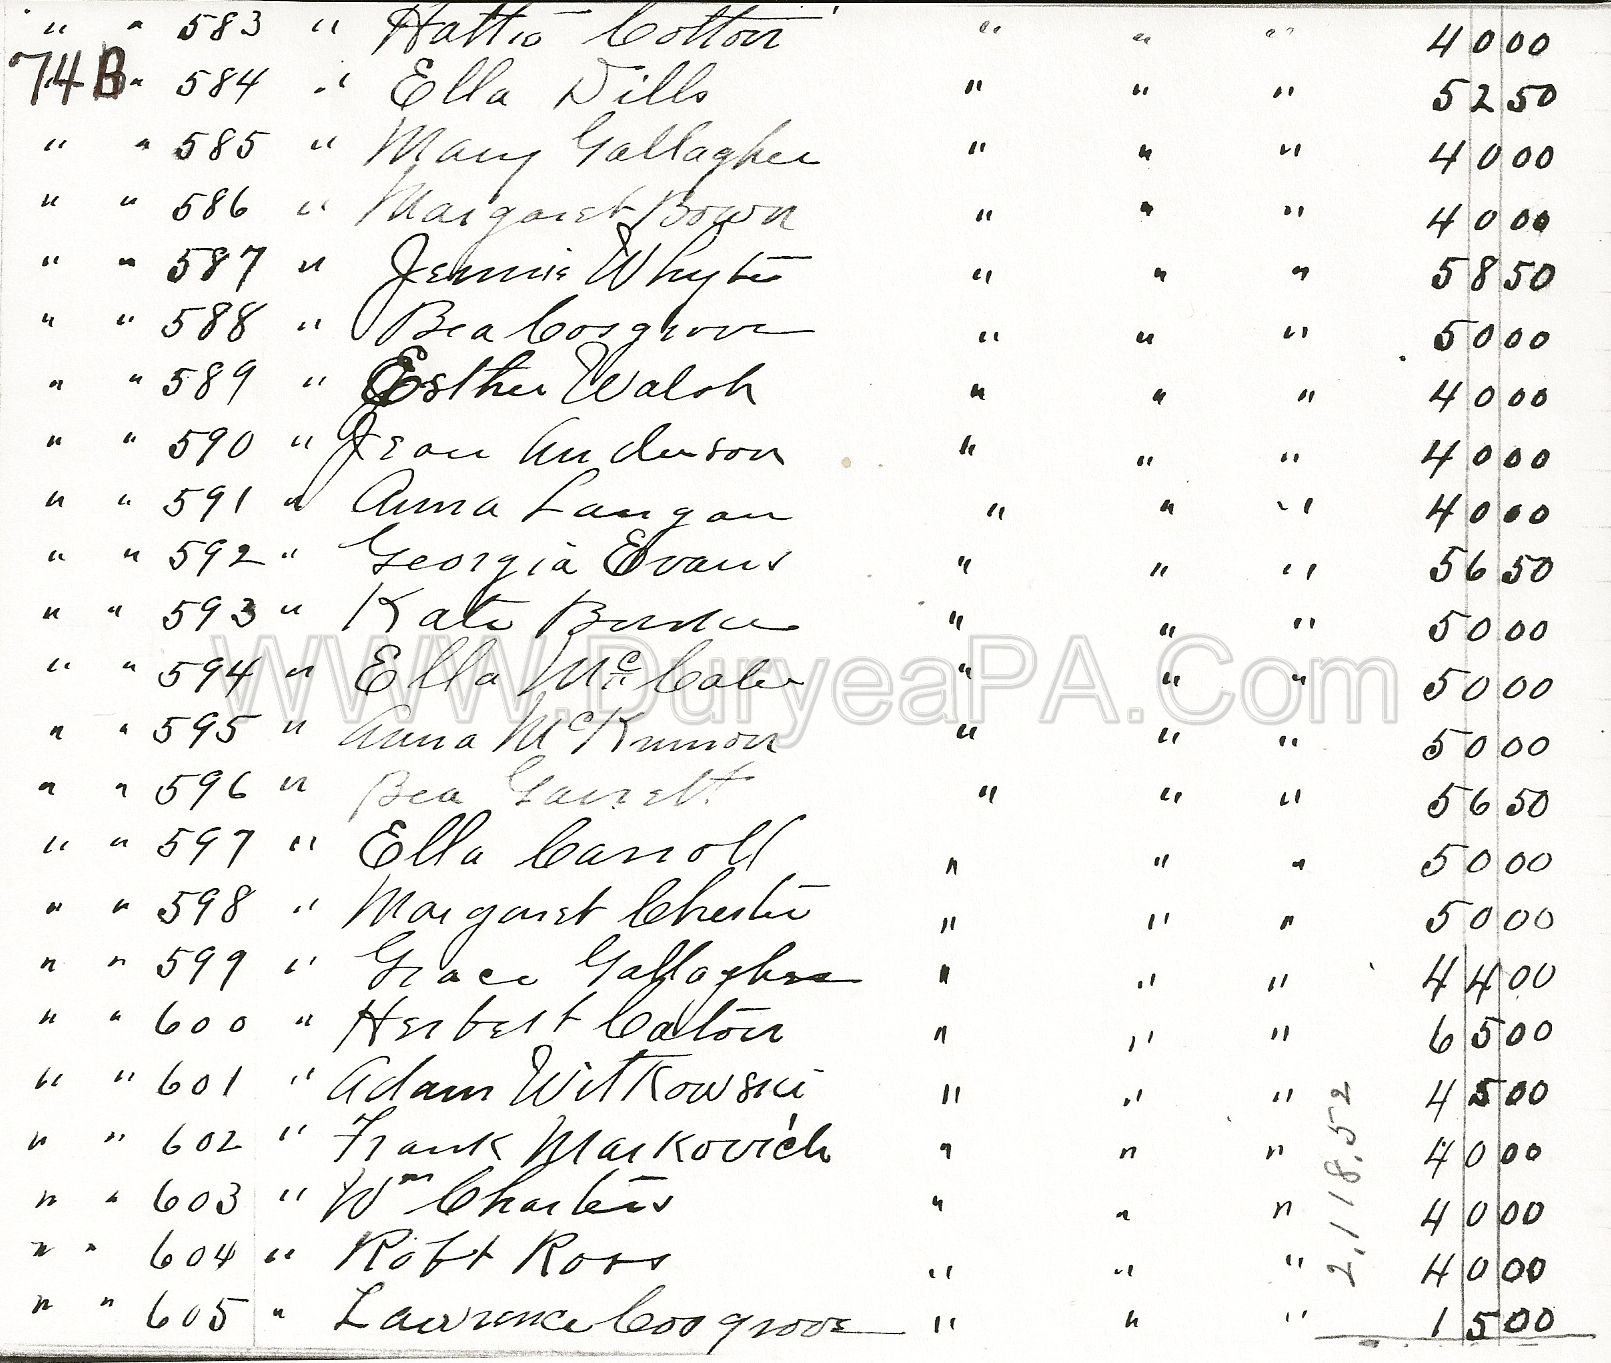 " " 583 " Hattie Cotton " " " 40 00
74B " 584 " Ella Dills " " " 52 50
" " 585 " Mary Gallagher " " " 40 00
" " 586 " Margaret Bown " " " 40 00
" " 587 " Jennie Whyte " " " 58 50
" " 588 " Bea Cosgrove " " " 50 00
" " 589 " Esther Walsh " " " 40 00
" " 590 " Jean Anderson " " " 40 00
" " 591 " Anna Langan " " " 40 00
" " 592 " Georgia Evans " " " 56 50
" " 593 " Kate Burke " " " 50 00
WWW.DuryeaPA.Com
" " 594 " Ella McCabe " " " 50 00
" " 595 " Anna McKinnon " " " 50 00
" " 596 " Bea Garrett " " " 56 50
" " 597 " Ella Carroll " " " 50 00
" " 598 " Margaret Chester " " " 50 00
" " 599 " Grace Gallagher " " " 44 00
" " 600 " Herbert Caton " " " 65 00
" " 601 " Adam Witkowski " " " 45 00
" " 602 " Frank Markovich " " " 40 00
" " 603 " Wm Charters " " " 40 00
" " 604 " Robt Ross " " " 40 00
" " 605 " Lawrence Cosgrove " " " 15 00
2,118.52